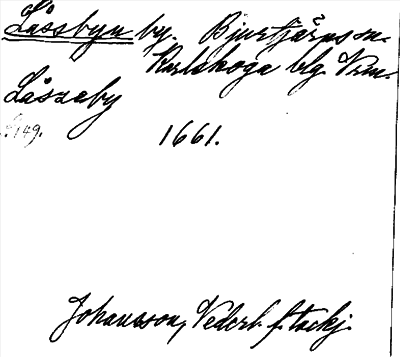 Låssbyn by. Bjurtjärns sn.
Karlskoga blg. Vrm.
Låszeby
149.
1661.
Johansson, Vederl. f. tackj.